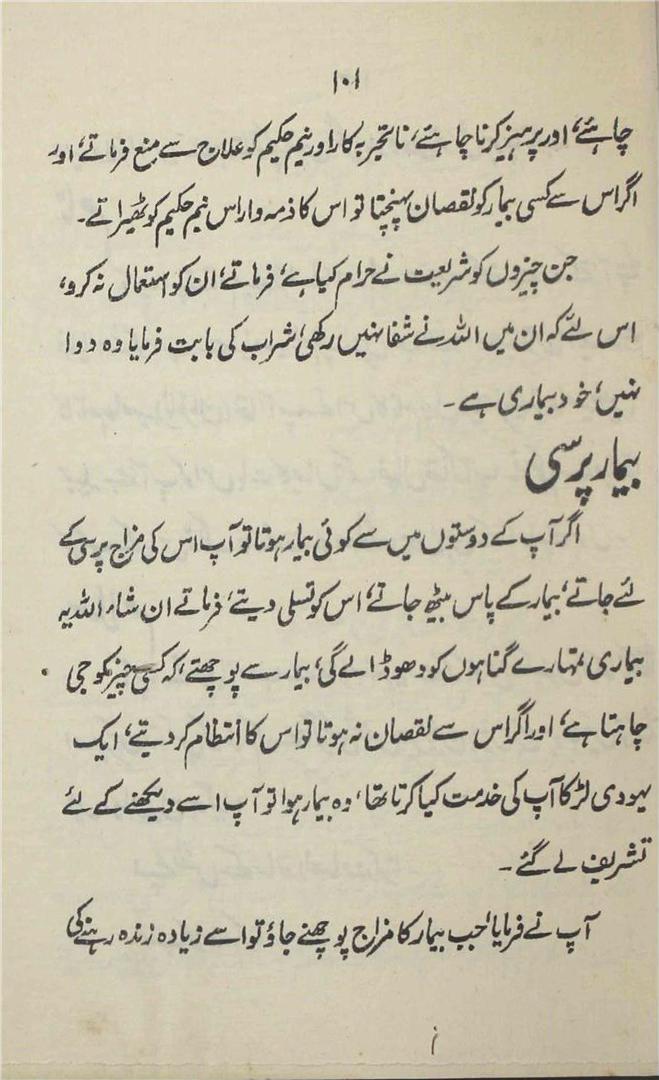 ۱۰۱
چاہئے، اور پرہیز کرنا چاہئے، ناتجربہ کار اور نیم حکیم کو علاج سے منع فرماتے، اور
اگر اس سے کسی بیمار کو نقصان پہنچتا تو اس کا ذمہ وار اس نیم حکیم کو ٹھیراتے۔
جن چیزوں کو شریعت نے حرام کیا ہے، فرماتے، ان کو استعمال نہ کرو،
اس لئے کہ ان میں اللہ نے شفا نہیں رکھی، شراب کی بابت فرمایا وہ دوا
نہیں، خود بیماری ہے۔
بیمار پرسی
اگر آپ کے دوستوں میں سے کوئی بیمار ہوتا تو آپ اس کی مزاج پرسی کے
لئے جاتے، بیمار کے پاس بیٹھ جاتے، اس کو تسلی دیتے، فرماتے ان شاء اللہ یہ
بیماری تمہارے گناہوں کو دھو ڈالے گی، بیمار سے پوچھتے، کہ کسی چیز کو جی
چاہتا ہے، اور اگر اس سے نقصان نہ ہوتا تو اس کا انتظام کر دیتے، ایک
یہودی لڑکا آپ کی خدمت کیا کرتا تھا، وہ بیمار ہوا تو آپ اسے دیکھنے کے لئے
تشریف لے گئے۔
آپ نے فرمایا، جب بیمار کا مزاج پوچھنے جاؤ تو اسے زیادہ زندہ رہنے کی